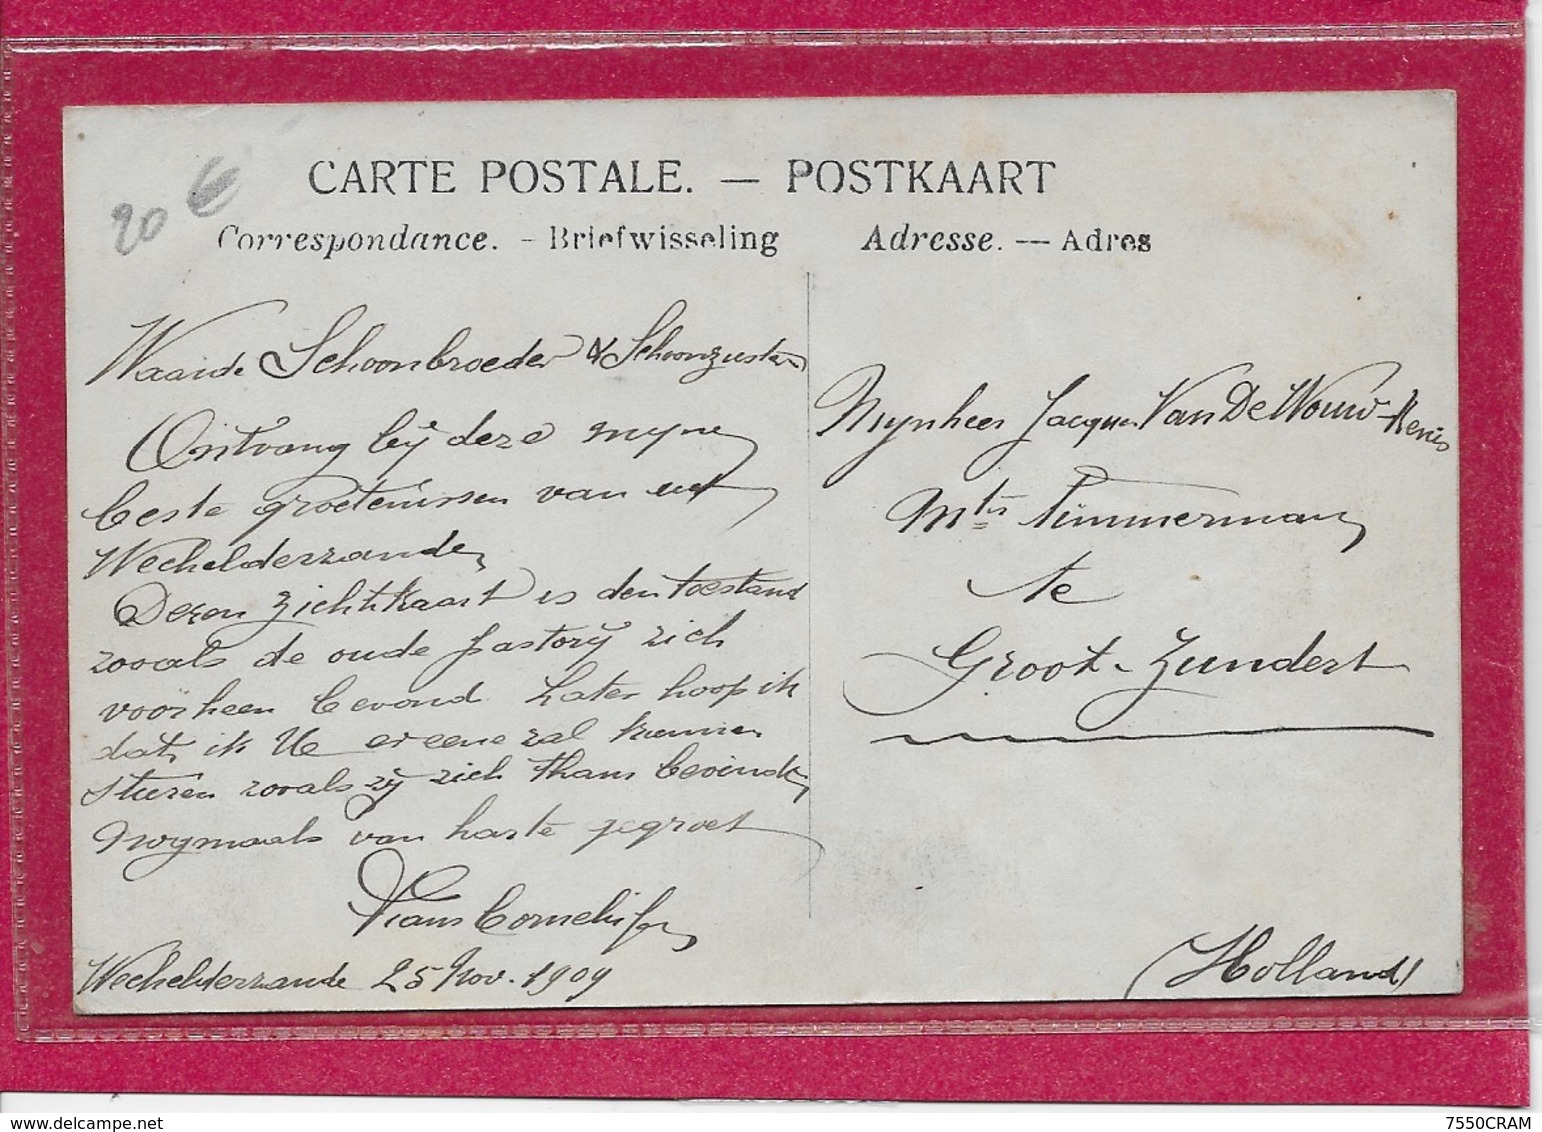 20 €
CARTE POSTALE. — POSTKAART
Correspondance. - Briefwisseling
Adresse. — Adres
Waarde Schoonbroeder & Schoonzuster
Ontvang bij deze myne
beste groetenissen van uit
Wechelderzande
Dezen zichtkaart is den toestand
zooals de oude pastorij zich
voorheen bevond Later hoop ik
dat ik Ue er eene zal kunnen
sturen zooals zij zich thans bevindt
Nogmaals van harte gegroet
Frans Cornelissen
Wechelderzande 25 Nov. 1909
Mynheer Jacques Van De Wouw-Kenis
Mter Timmerman
te
Groot-Zundert
(Holland)
delcampe.net
7550CRAM